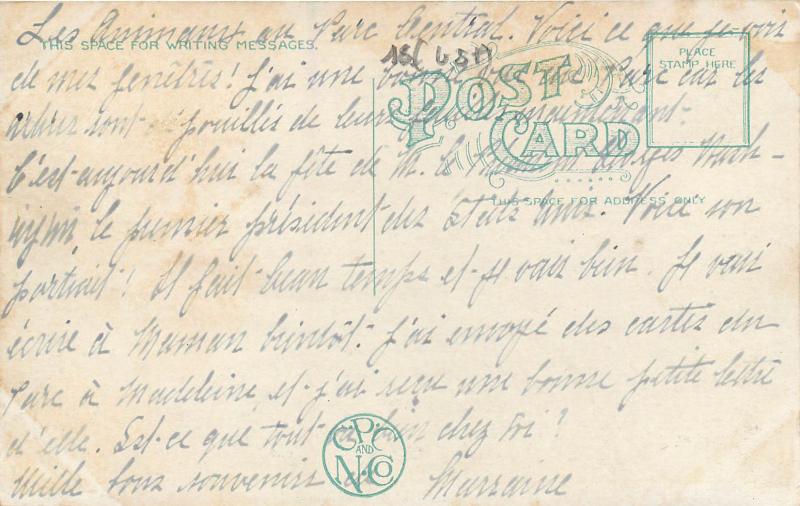 Les Animaux au Parc Central. Voici ce que je vois
THIS SPACE FOR WRITING MESSAGES.
PLACE
STAMP HERE
de mes fenêtres! J'ai une vue Parc car les
POST
CARD
arbres sont de leurs maintenant.
C'est aujourd'hui la fête de M. le Wash-
THIS SPACE FOR ADDRESS ONLY
le premier président des États Unis. Voici son
portrait! Il fait beau temps et je vais bien. Je vais
écrire à Maman bientôt. J'ai envoyé des cartes du
Parc à Madeleine et j'ai reçu une bonne petite lettre
d'elle. Est-ce que tout va bien chez toi?
Mille bons souvenirs de Marraine
C.P.C.
AND
N.CO